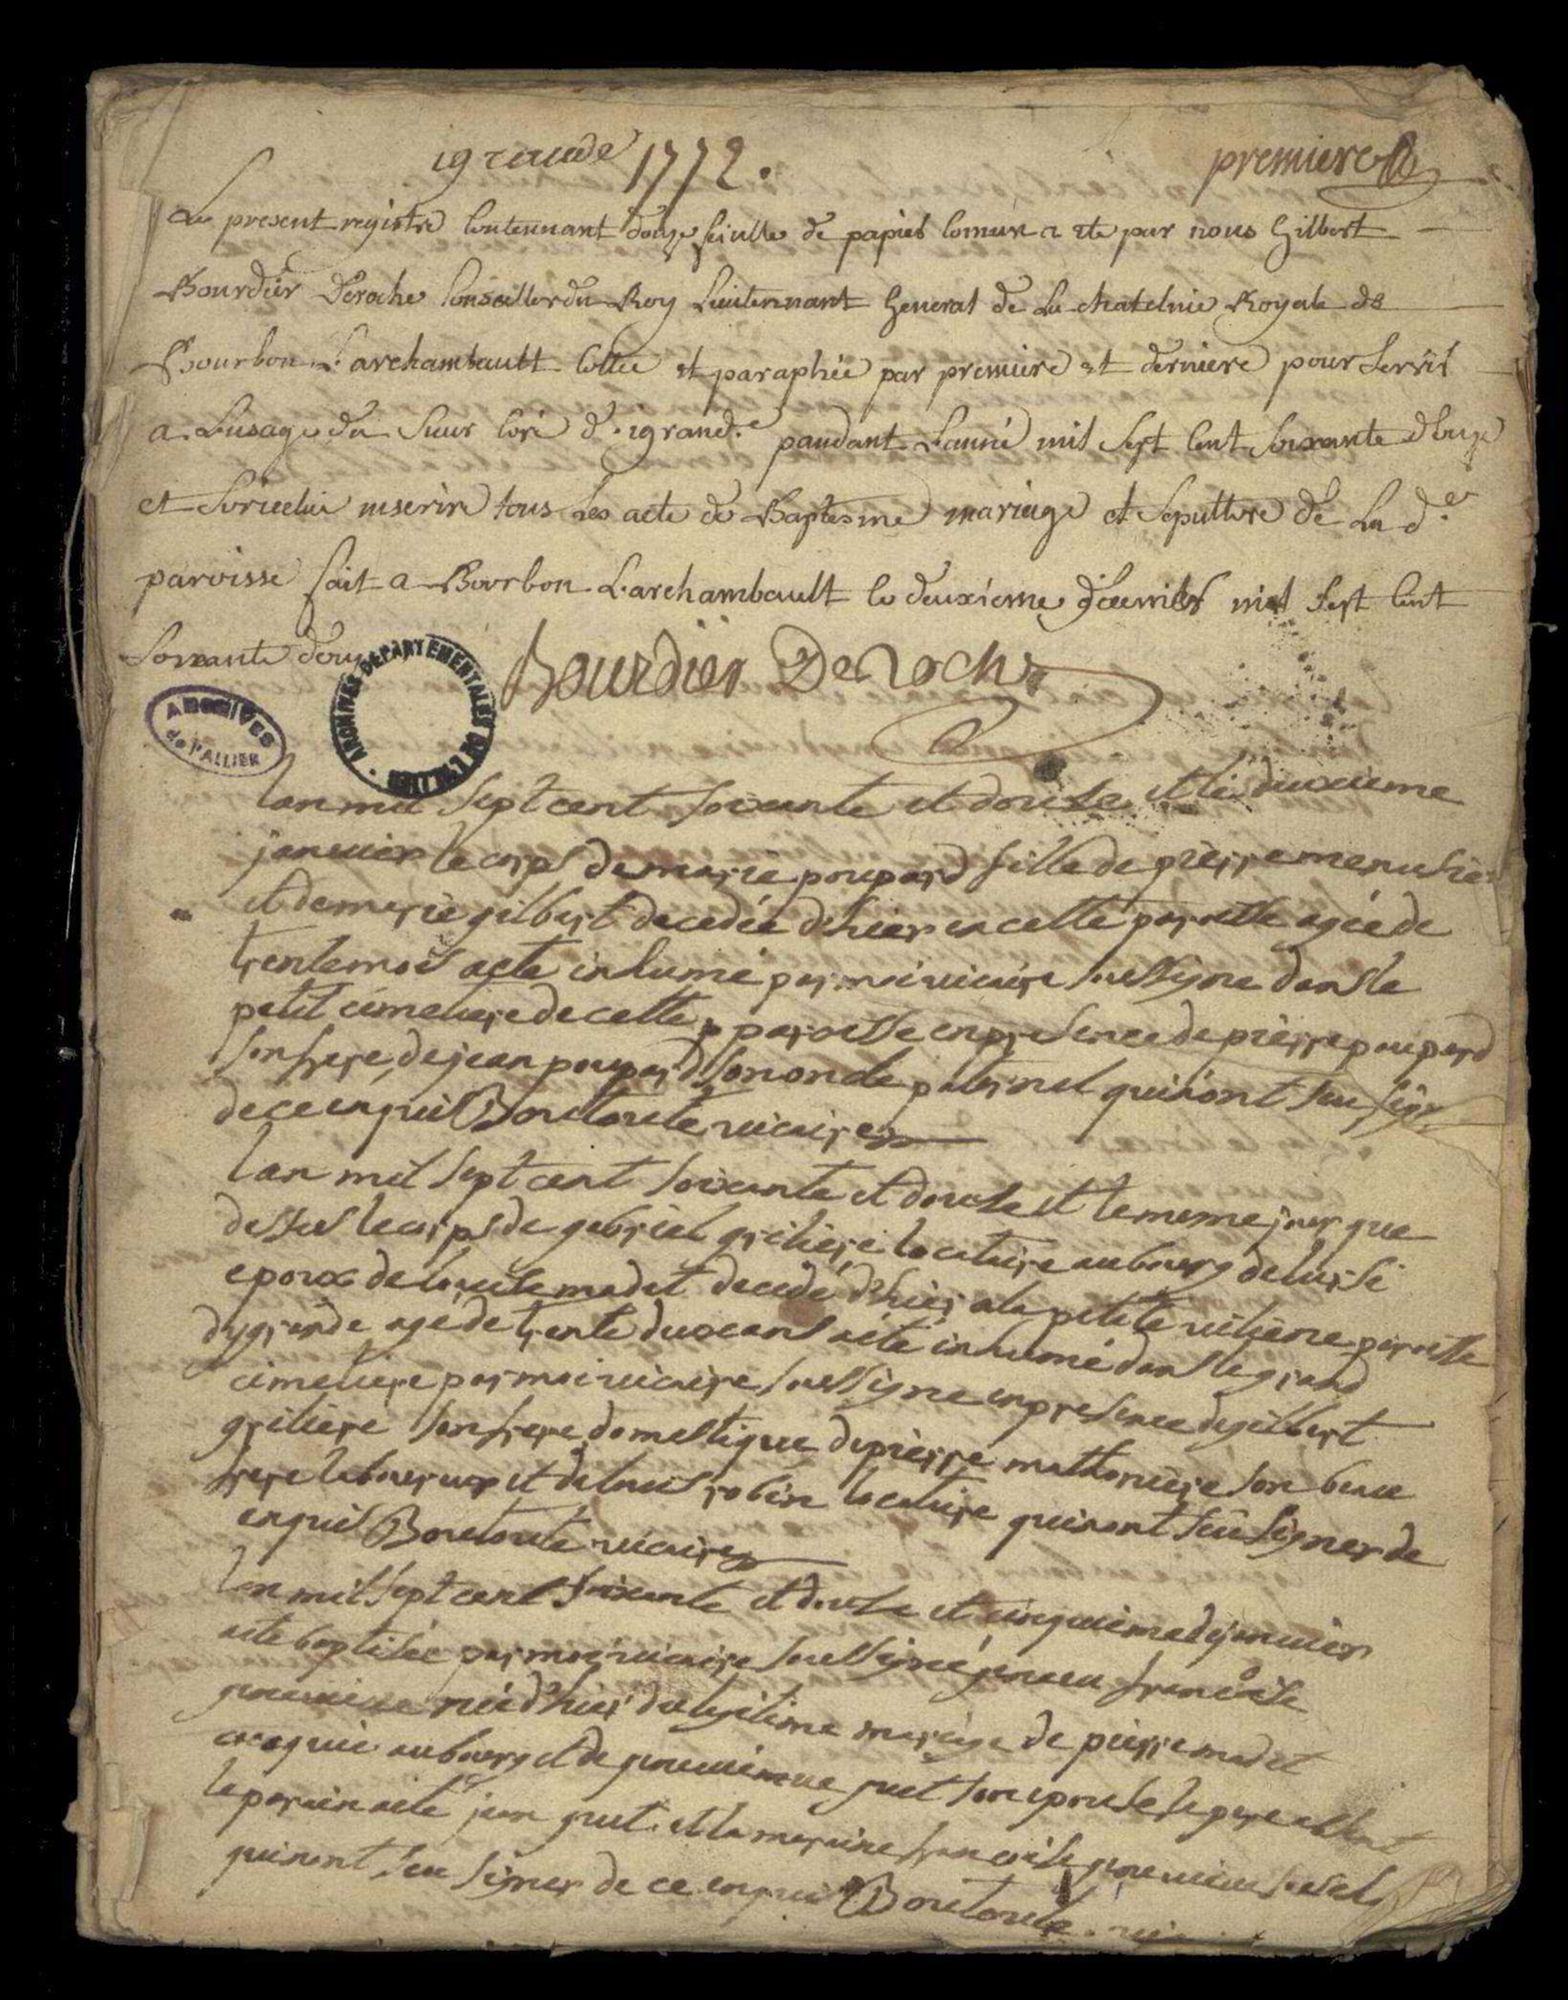 igrande 1772. premiere
Le present registre Contennant douze feiulle de papier Comun a ete par nous Gilbert
Bourdier Deroche Conseiller du Roy Lieutennant General de La chatelnie Royale de
Bourbon L'archambault Cottée et paraphée par premiere et derniere pour Servir
a L'usage du Sieur Curé d'igrande pandant L'année mil Sept Cent Soixante douze
et Sur icelui inserire tous Les acte de Baptesme mariage et Sepulture de La de
paroisse fait a Bourbon L'archambault le deuxieme mil Sept Cent
Soixante douze
Bourdier Deroche
ARCHIVES DEPARTEMENTALES DE L'ALLIER
ARCHIVES de l'ALLIER
lan mil sept cent soixante et douse et le duxieme
janvier le corps de marie poupard fille de pierre menusier
et de marie gilbert decedée d'hier en cette paroisse agée de
trente mois aeté inhumé par moi vicaire soussigné dans le
petit cimetiere de cette paroisse en presence de pierre poupard
son frere, de jean poupard son oncle paternel qui n'ont seu sign
de ce enquis Boutoute vicaire
lan mil sept cent soixante et douse et le meme jour que
dessus le corps de gabriel griliere locataire au bourg de
epoux de louise madet decedé d'hier a la petite viliene paroisse
dygrande agé de trente duxe ans aeté inhumé dans le grand
cimetiere par moi vicaire soussigné en presence de gilbert
griliere son frere domestique de pierre mathoniere son beau
frere laboureur et de louis robin locataire qui n'ont seu signer de
enquis Boutoute vicaire
lan mil sept cent soixante et douse et cinquieme de janvier
aeté baptisée par moi vicaire soussigné françoise
née d'hier du legitime mariage de pierre madet
au bourg et de son epouse le pere absent
le parain aeté jean et la maraine françoise
qui n'ont seu signer de ce enquis Boutoute